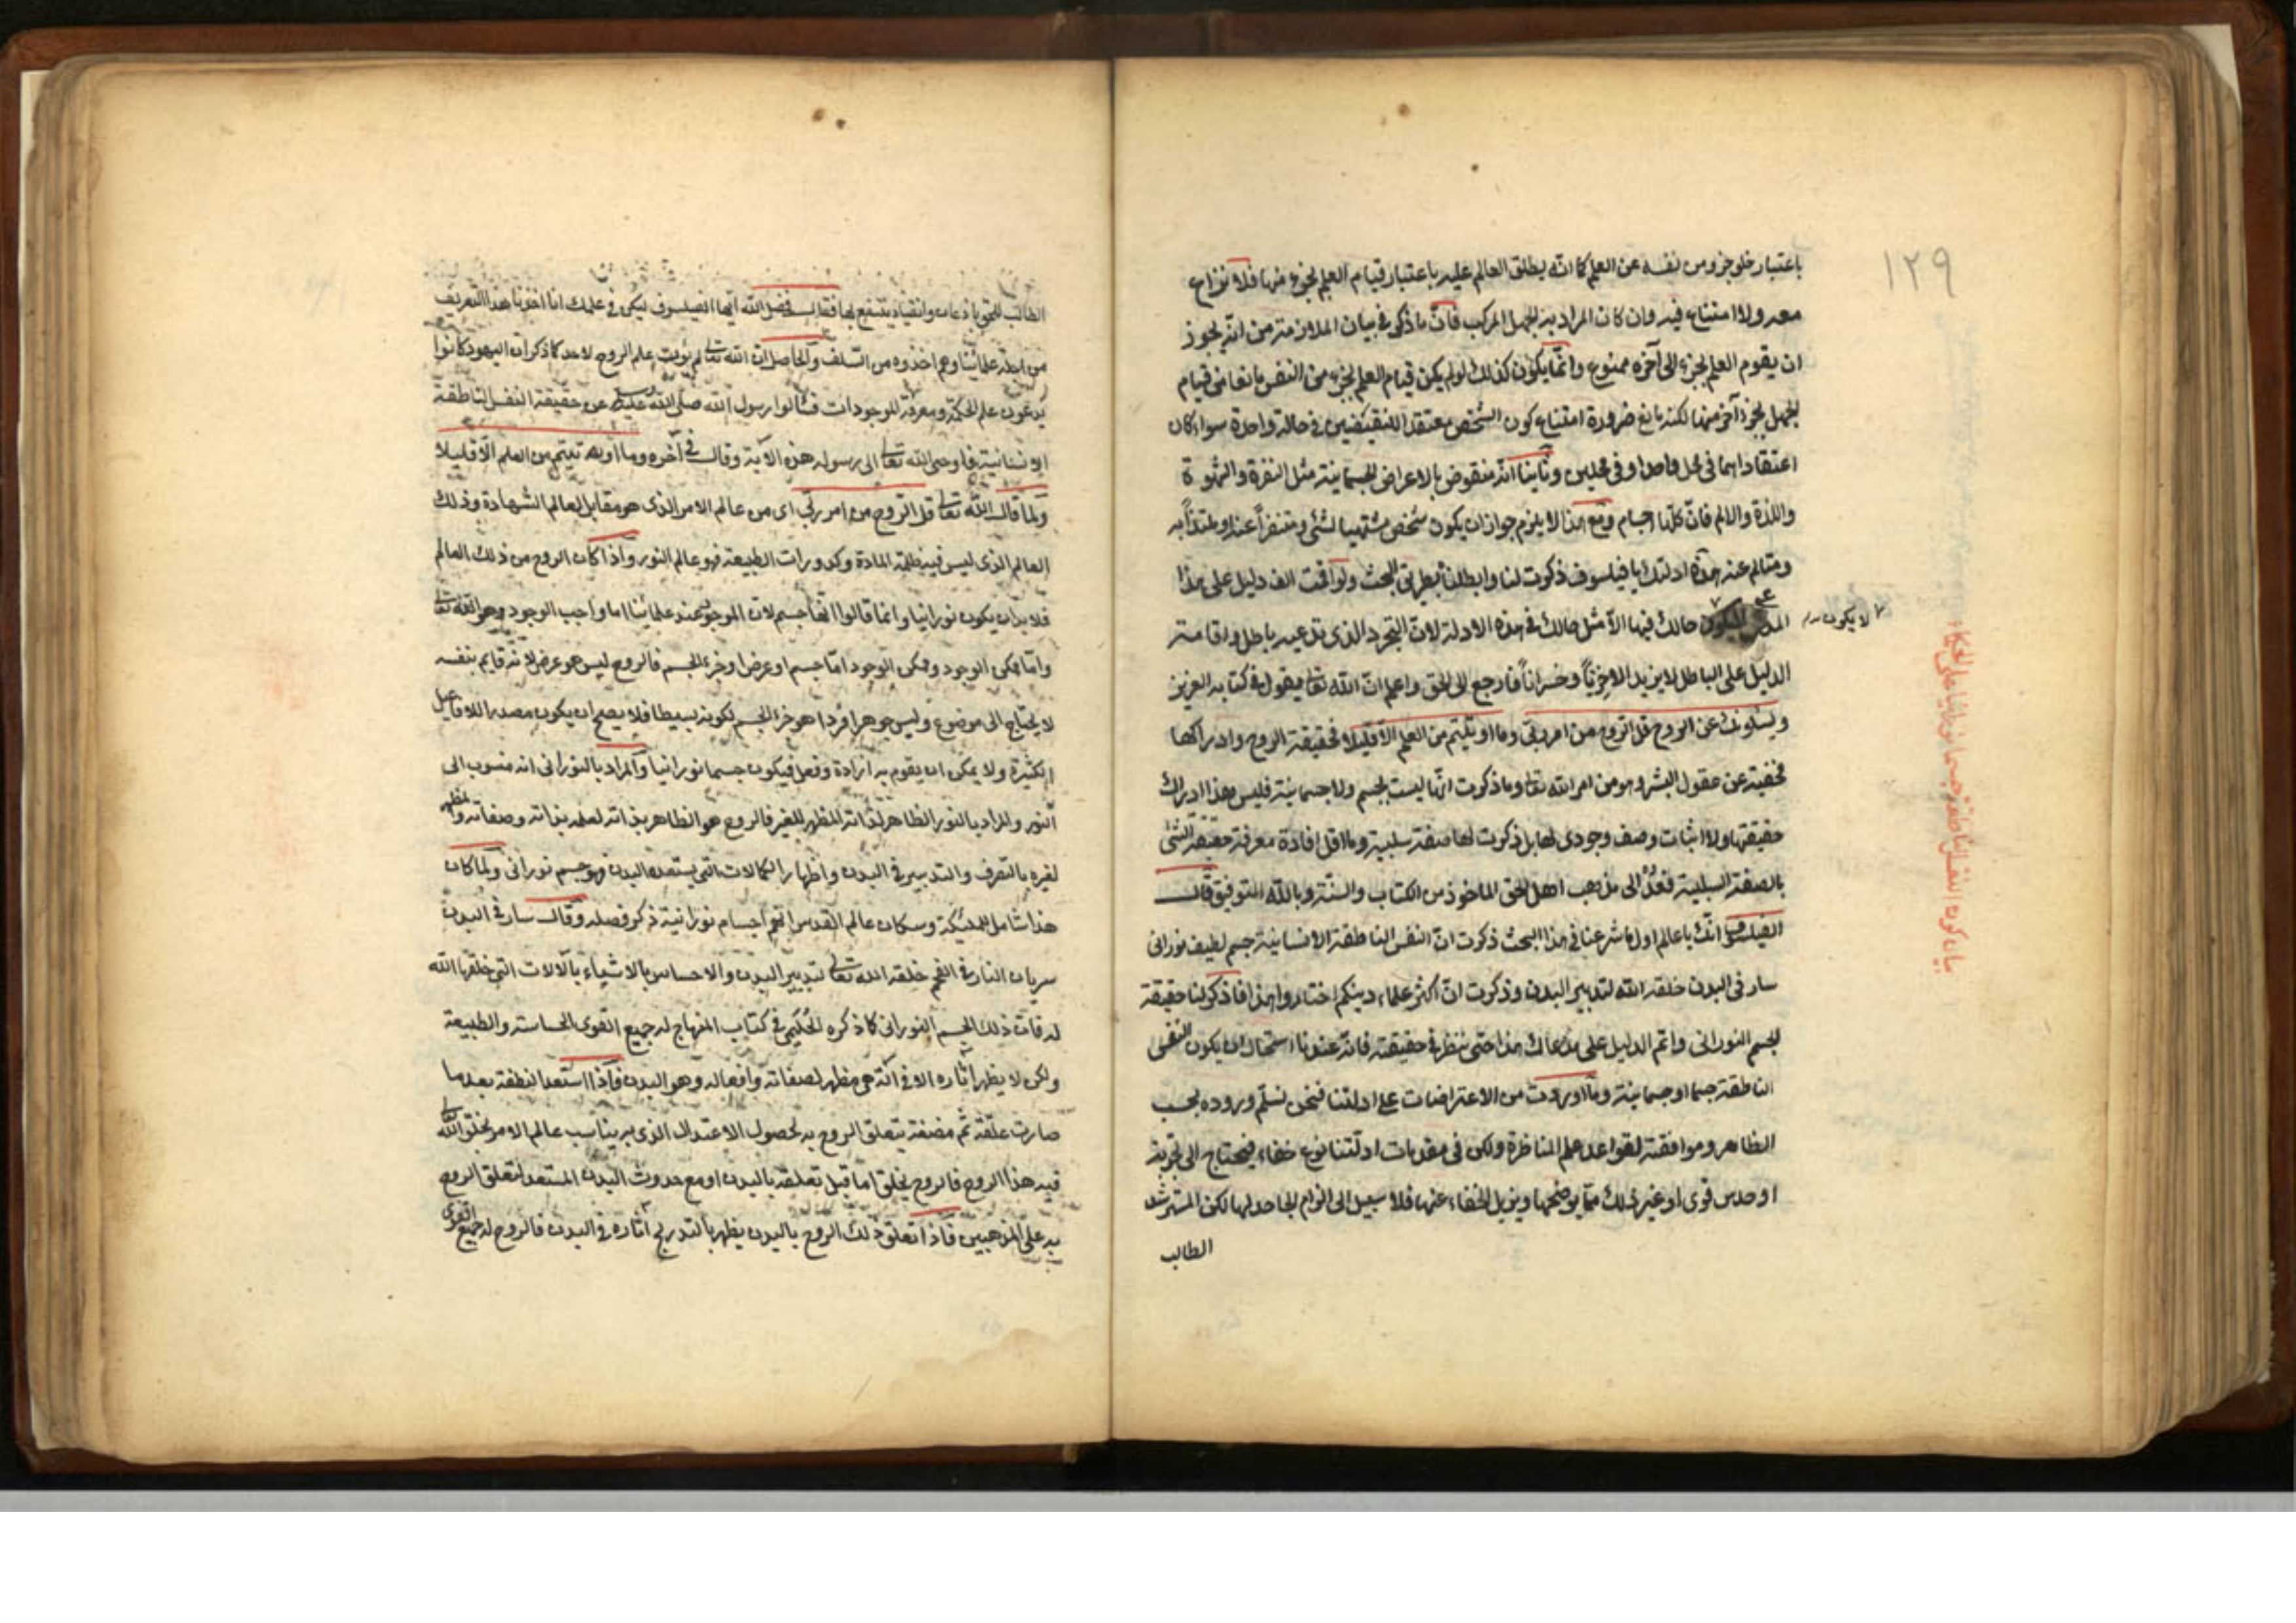 ١٢٩
باعتبار خلو جزء من نفسه عن العلم كما انّه يطلق العالم عليه باعتبار قيام العلم بجزء منها فلا نزاع
معه ولا امتناع فيه وان كان المراد به الجهل المركب فانّ ما ذكر فى بيان الملازمة من انّه يجوز
ان يقوم العلم بجزء الى آخره ممنوع وانّما يكون كذلك لو لم يكن قيام العلم بجزء من النفس مانعا من قيام
الجهل بجزء آخر منها لكنه مانع ضرورة امتناع كون الشخص معتقد اللنقيضين فى حالة واحدة سواء كان
اعتقاداهما فى محل واحد او فى محلين وثانيا انّه منقوض بالاعراض الجسمانية مثل النفرة والشهوة
واللذة والالم فانّ كلّها اجسام ومع هذا لا يلزم جواز ان يكون شخص مشتهيا لشئ ومتنفراً عنه او ملتذاً به
ومتالم عنه هذه ادلتك يا فيلسوف ذكرت لنا وابطلنا بطريق البحث ولو اقمت الف دليل على هذا
المدعى حالك فيها الا مثل حالك فى هذه الادلة لانّ التجرد الذى تدعيه باطل واقامة
لا يكون
الدليل على الباطل لا يزيد الا خزياً وخسراناً فارجع الى الحق واعلم انّ الله تعالى يقول فى كتابه العزيز
ويسئلونك عن الروح قل الروح من امر ربى وما اوتيتم من العلم الا قليلا فحقيقة الروح وادراكها
مخفية عن عقول البشر وهو من امر الله تعالى وما ذكرت انّها ليست بجسم ولا جسمانية فليس هذا ادراك
حقيقتها ولا اثبات وصف وجودى لها بل ذكرت لها صفة سلبية وما اقل افادة معرفة حقيقة الشئ
بالصفة السلبية فعُدْ الى مذهب اهل الحق الماخوذ من الكتاب والسنّة وبالله التوفيق قال
الفيلسوف انّك يا عالم اول ما شرعنا فى هذا البحث ذكرت انّ النفس الناطقة الانسانية جسم لطيف نورانى
سار فى البدن خلقه الله لتدبير البدن وذكرت انّ اكثر علماء دينكم اختاروا هذا فاذكر لنا حقيقة
الجسم النورانى واتم الدليل على مدعاك هذا حتى ننظر فى حقيقته فانّه عندنا استحال ان يكون النفس
الناطقة جسما او جسمانية وما اوردت من الاعتراضات على ادلتنا فنحن نسلّم وروده بحسب
الظاهر وموافقته لقواعد علم المناظرة ولكن فى مقدمات ادلّتنا نوع خفاء فيحتاج الى تجربة
او حدس قوى او غير ذلك ممّا يوضحها ويزيل الخفاء عنها فلا سبيل الى الزام الجاحد لها لكن المسترشد
الطالب
بيان كون النفس الناطقة جسما نورانيا على الحكماء
الطالب للحق باذعان وانقياد ينتفع بها فقال فضل الله ايّها الفيلسوف ليكن فى علمك انا اخذنا هذا التعريف
من علمائنا وهم اخذوه من السّلف والحاصل انّ الله تعالى لم يؤت علم الروح لاحد كما ذكر ان اليهود كانوا
يدعون علم الحكمة ومعرفة الموجودات فسألوا رسول الله صلى الله عليه وسلم عن حقيقة النفس الناطقة
الانسانية فاوحى الله تعالى الى رسوله هذه الآية وقال فى آخره وما اوتيتم من العلم الّا قليلا
ولما قال الله تعالى قل الروح من امر ربّى اى من عالم الامر الذى هو مقابل لعالم الشهادة وذلك
العالم الذى ليس فيه ظلمة المادة وكدورات الطبيعة فهو عالم النور واذا كان الروح من ذلك العالم
فلا بد ان يكون نورانيا وانما قالوا انّها جسم لان الموجود عند علمائنا اما واجب الوجود وهو الله تعالى
وامّا ممكن الوجود وممكن الوجود امّا جسم او عرض او جزء الجسم فالروح ليس هو عرض لانه قايم بنفسه
لا يحتاج الى موضوع وليس جوهرا فردا هو جزء الجسم لكونه بسيطا فلا يصح ان يكون مصدرا للافاعيل
الكثيرة ولا يمكن ان يقوم به ارادة وفعل فيكون جسما نورانيا والمراد بالنورانى انه منسوب الى
النور والمراد بالنور الظاهر لذاته المظهر للغير فالروح هو الظاهر بذاته لعلمه بذاته وصفاته والمظهر
لغيره بالتصرف والتدبير فى البدن واظهار الكمالات التى يستعدها البدن فهو جسم نورانى ولما كان
هذا شاملا للملئكة وسكان عالم القدس انهم اجسام نورانية ذكر فصله وقال سار فى البدن
سريان النار فى الفحم خلقه الله تعالى لتدبير البدن والاحساس بالاشياء بآلالات التى خلقها الله
له فان ذلك الجسم النورانى كما ذكره الحُليمى فى كتاب المنهاج له جميع القوى الحاسة والطبيعة
ولكن لا يظهر آثاره الا فى آلة هى مظهر لصفاته وافعاله وهو البدن فاذا استعد النطفة بعد ما
صارت علقة ثم مضغة يتعلق الروح به لحصول الاعتدال الذى به يناسب عالم الامر يخلق الله
فيه هذا الروح فالروح يخلق امّا قبل تعلقه بالبدن او مع حدوث البدن المستعد لتعلق الروح
به على المذهبين فاذا تعلق ذلك الروح بالبدن يظهر بالتدريج آثاره فى البدن فالروح له جميع القوى